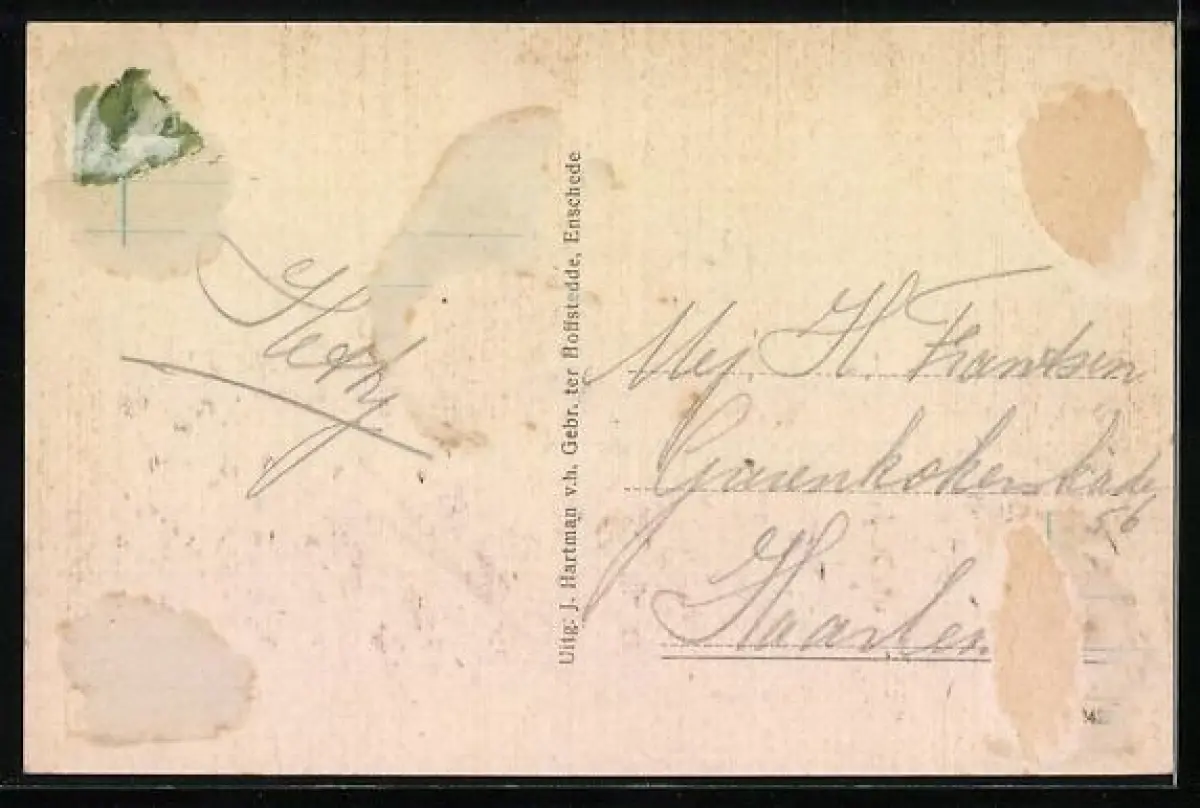 Hetty
Uitg: J. Hartman v.h. Gebr. ter Hoffstedde, Enschede
Mej. H. Frantsen
56
Haarlem